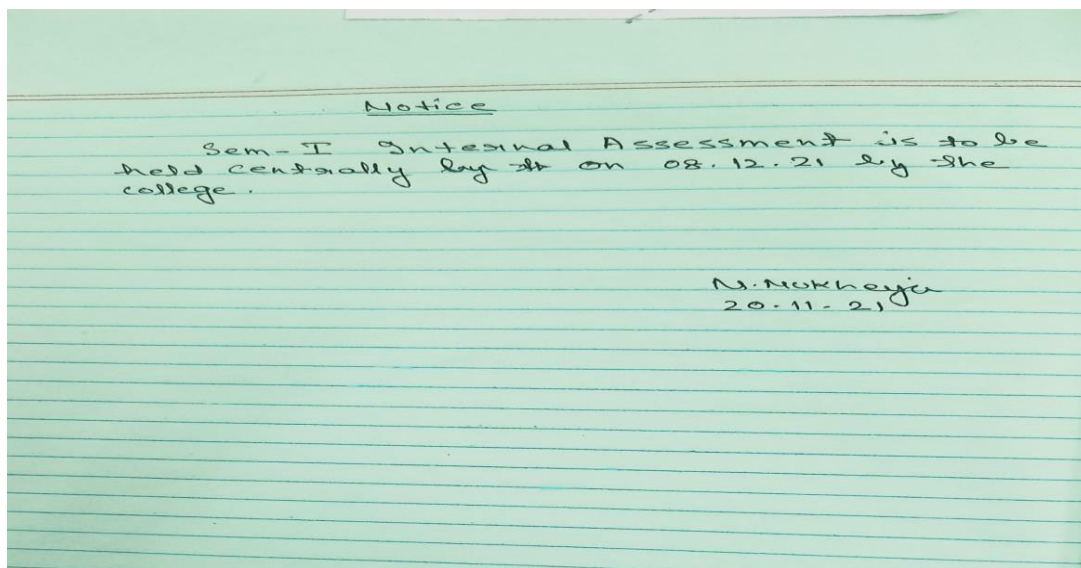 Notice
Sem-I Internal Assessment is to be
held centrally by on 08.12.21 by the
college.
N. Mukherjee
20.11.21